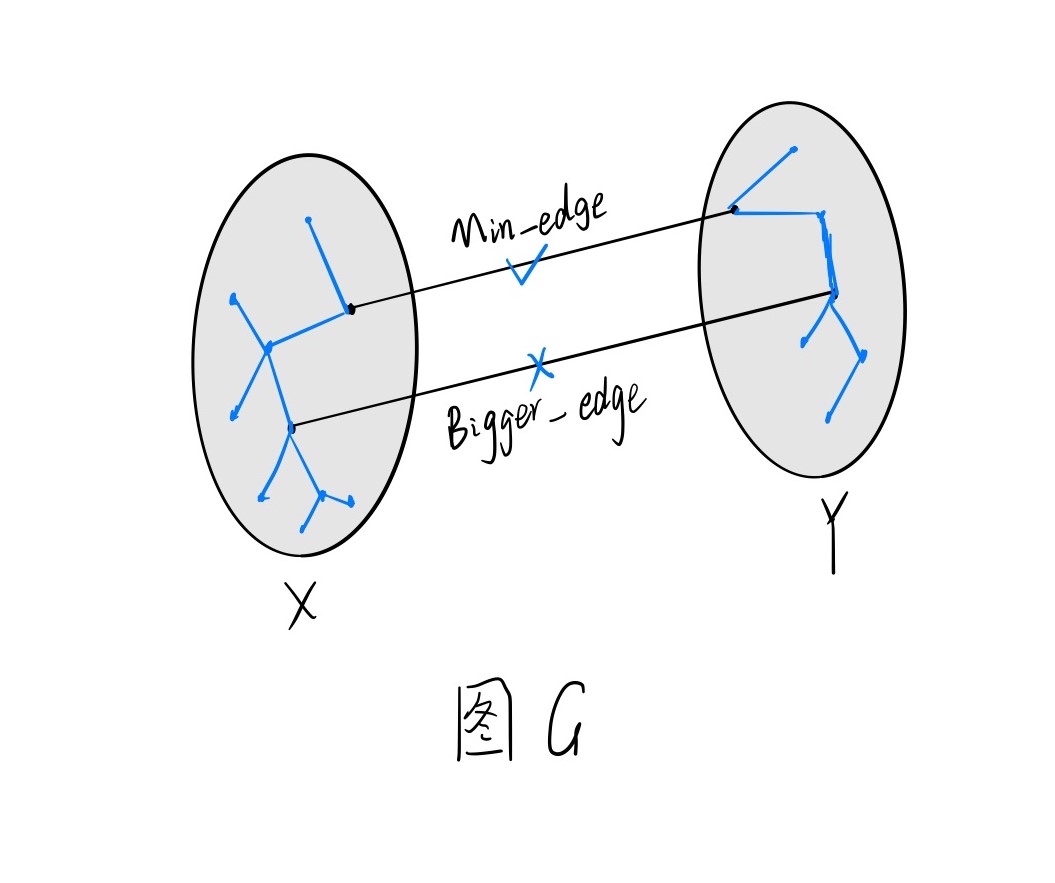 Min-edge
Bigger-edge
Y
X
图 G